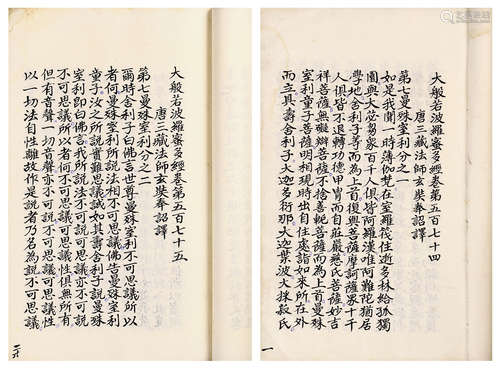 大般若波羅蜜多經卷第五百七十四
唐三藏法師玄奘奉詔譯
第七曼殊室利分之一
如是我聞一時薄伽梵在室羅筏住逝多林給孤獨
園與大苾芻眾百千人俱皆阿羅漢唯阿難陀猶居
學地舍利子等而為上首復與菩薩摩訶薩眾十千
人俱皆不退轉功德甲冑而自莊嚴慈氏菩薩妙吉
祥菩薩無礙辯菩薩不捨善軛菩薩而為上首曼殊
室利童子菩薩明相現時出自住處詣如來所在外
而立具壽舍利子大迦多衍那大迦葉波大採菽氏
一
大般若波羅蜜多經卷第五百七十五
唐三藏法師玄奘奉詔譯
第七曼殊室利分之二
爾時舍利子白佛言世尊曼殊室利不可思議所以
者何曼殊室利所說法相不可思議佛告曼殊室利
童子汝之所說實難思議誠如具壽舍利子說曼殊
室利即白佛言我所說法不可說可思議亦不可說
不可思議所以者何不可思議可思議性俱無所有
但有音聲一切音聲亦不可說可思議不可思議
以一切法自性離故作是說者乃名為說不可思議